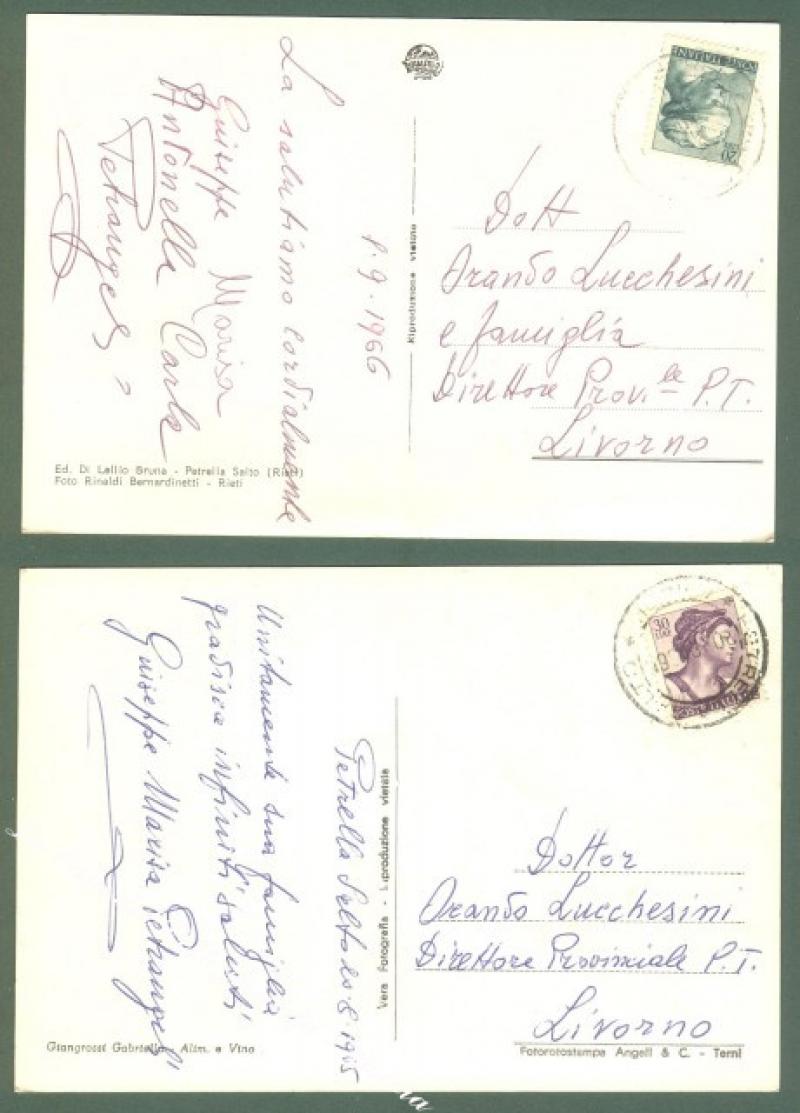 La salutiamo cordialmente
Giuseppe Marisa
Antonella Carla
8.9.1966
Riproduzione vietata
POSTE ITALIANE
20
Dott
Orando Lucchesini
e famiglia
Direttore Prov.le P.T.
Livorno
Ed. Di Lellio Bruna - Petrella Salto (Rieti)
Foto Rinaldi Bernardinetti - Rieti
Unitamente sua famiglia
gradisca infiniti saluti
Giuseppe Marisa Petrangeli
Petrella Salto 20.8.1965
Vera Fotografia - Riproduzione vietata
30
LIRE
Dottor
Orando Lucchesini
Direttore Provinciale P.T.
Livorno
Giangrossi Gabriella - Alim. e Vino
Fotorotostampa Angeli & C. - Terni